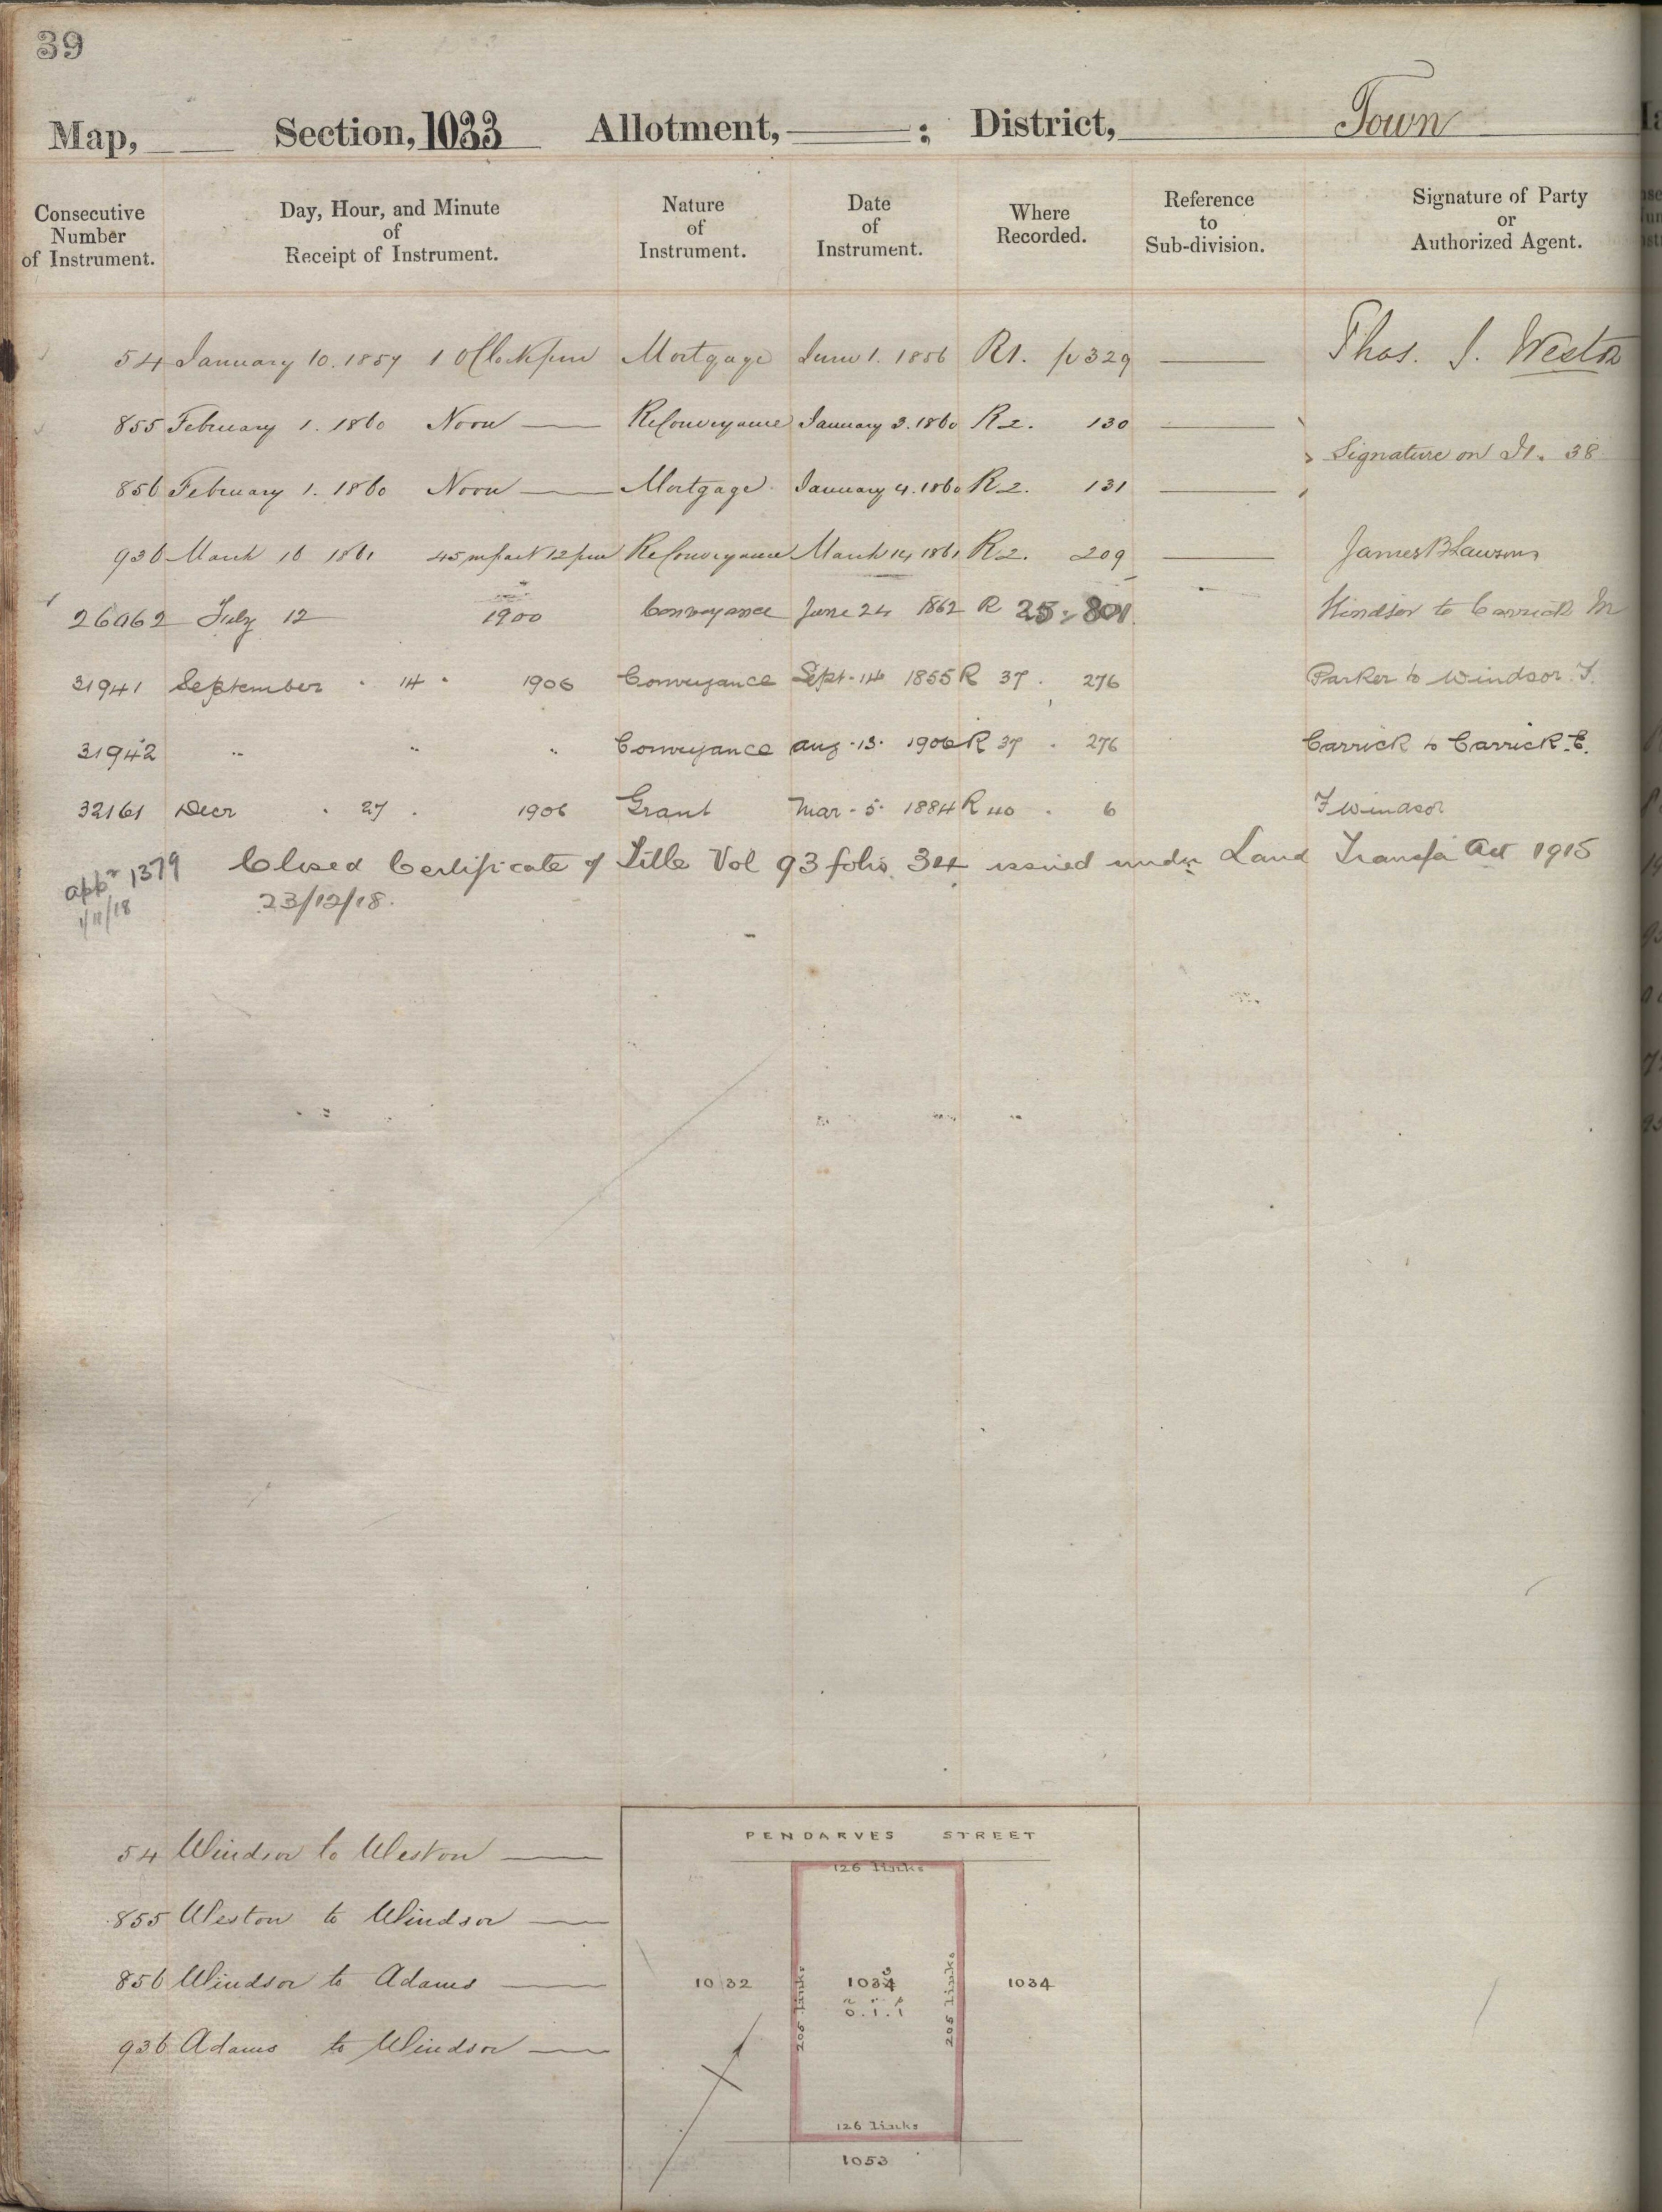 39
Map, Section, 1033 Allotment, ——— : District, Town
Consecutive Number of Instrument.
Day, Hour, and Minute of Receipt of Instrument.
Nature of Instrument.
Date of Instrument.
Where Recorded.
Reference to Sub-division.
Signature of Party or Authorized Agent.
54 January 10. 1857 1 O'Clock pm Mortgage June 1. 1856 R1. p 329 ——— Thos. J. Weston
855 February 1. 1860 Noon — ReConveyance January 3. 1860 R2. 130 ———
Signature on It. 38
856 February 1. 1860 Noon — Mortgage January 4. 1860 R2. 131 ———
936 March 16 1861 45 m past 12 pm ReConveyance March 14 1861 R2. 209 ——— James B Lawson
26062 July 12 1900 Conveyance June 24 1862 R 25. 801 Windsor to Carrick M
31941 September . 14 . 1906 Conveyance Sept. 14 1855 R 37 . 276 Parker to Windsor. F.
31942 " " " Conveyance Aug. 13. 1906 R 37 . 276 Carrick to Carrick. E.
32161 Decr . 27 . 1906 Grant Mar. 5. 1884 R 40 . 6 F Windsor
appn 1379 Closed Certificate of Title Vol 93 folio 34 issued under Land Transfer Act 1915
1/11/18 23/12/18.
54 Windsor to Weston —
855 Weston to Windsor —
856 Windsor to Adams —
936 Adams to Windsor —
PENDARVES STREET
126 links
1032
205 links
1033
a r p
0. 1. 1
205 links
1034
126 links
1053